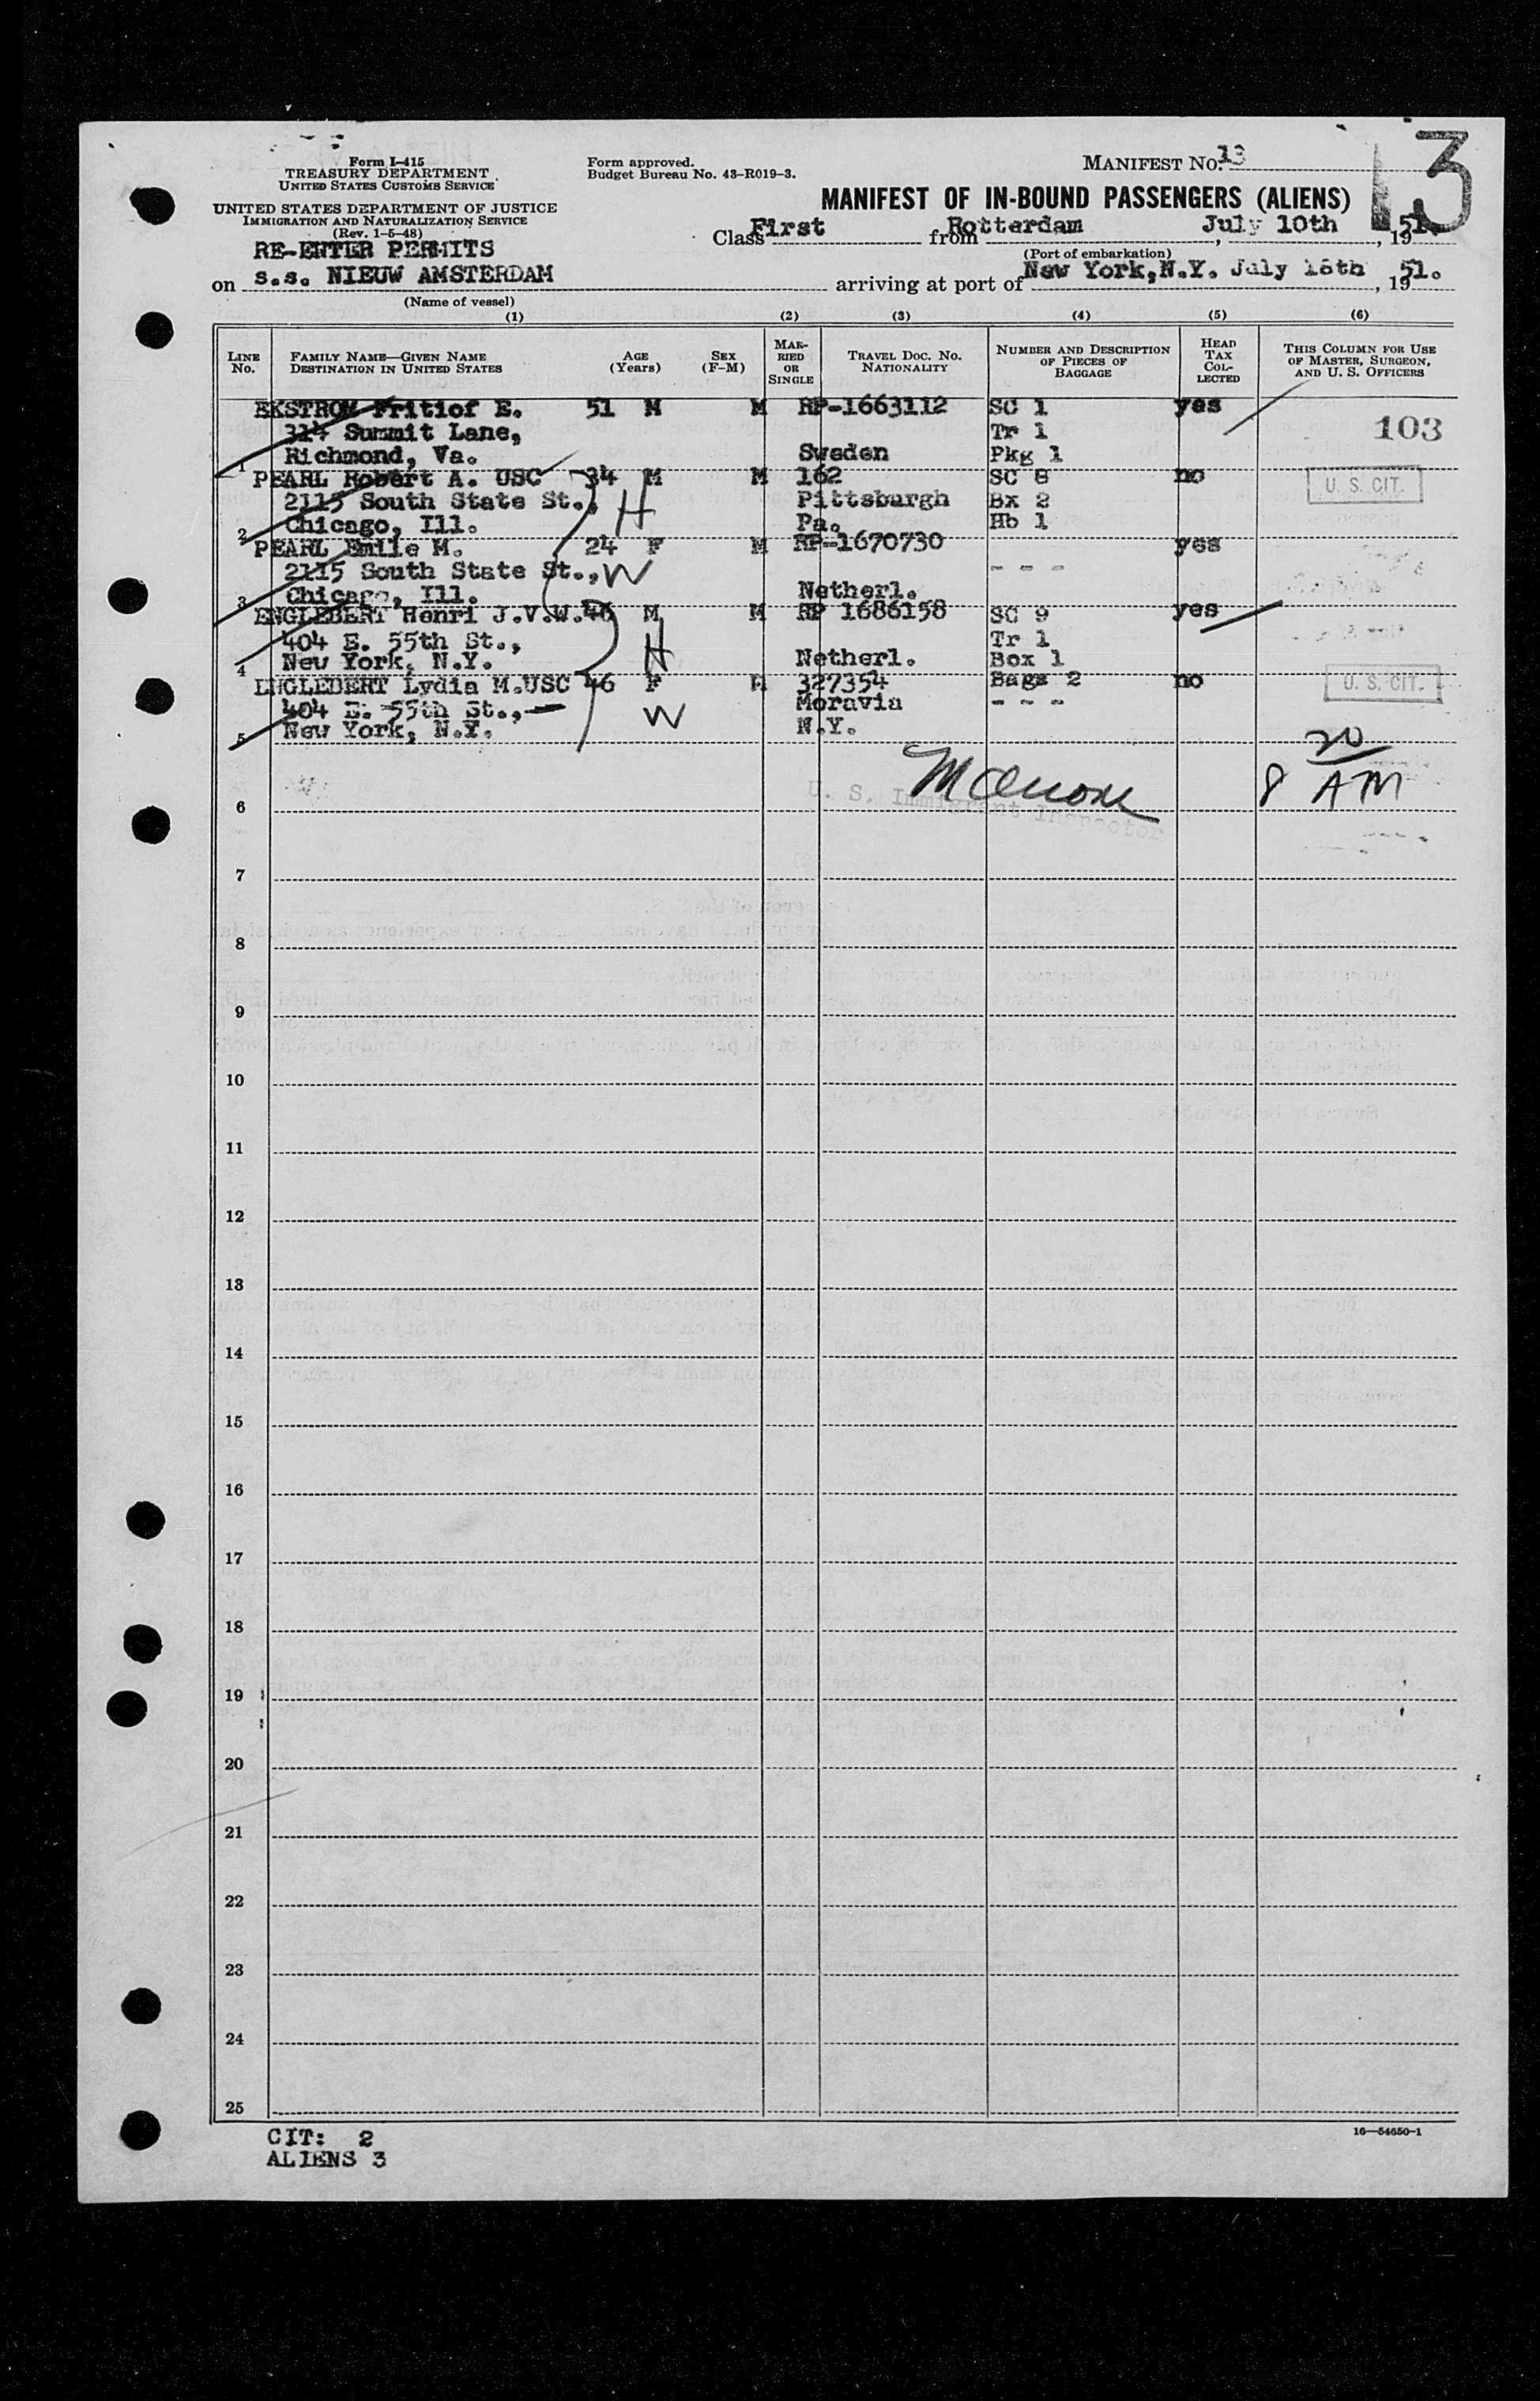 Form I-415
TREASURY DEPARTMENT
UNITED STATES CUSTOMS SERVICE
UNITED STATES DEPARTMENT OF JUSTICE
IMMIGRATION AND NATURALIZATION SERVICE
(Rev. 1-5-48)
RE-ENTER PERMITS
Form approved.
Budget Bureau No. 43-R019-3.
MANIFEST NO. 13
13
MANIFEST OF IN-BOUND PASSENGERS (ALIENS)
Class First from Rotterdam, July 10th, 1951.
(Port of embarkation)
on s.s. NIEUW AMSTERDAM arriving at port of New York, N.Y. July 18th, 1951.
(Name of vessel)
(1) (2) (3) (4) (5) (6)
LINE No. FAMILY NAME—GIVEN NAME DESTINATION IN UNITED STATES AGE (Years) SEX (F-M) MARRIED OR SINGLE TRAVEL DOC. NO. NATIONALITY NUMBER AND DESCRIPTION OF PIECES OF BAGGAGE HEAD TAX COLLECTED THIS COLUMN FOR USE OF MASTER, SURGEON, AND U. S. OFFICERS
EKSTROM Fritiof E. 51 M M RP-1663112 SC 1 yes
314 Summit Lane, Tr 1 103
1 Richmond, Va. Sweden Pkg 1
PEARL Robert A. USC 34 M M 162 SC 8 no U. S. CIT.
2115 South State St., H Pittsburgh Bx 2
2 Chicago, Ill. Pa. Hb 1
PEARL Emilie M. 24 F M RP-1670730 yes
2115 South State St., W - - -
3 Chicago, Ill. Netherl.
ENGLEBERT Henri J.V.W. 46 M M RP 1686158 SC 9 yes
404 E. 55th St., H Tr 1
4 New York, N.Y. Netherl. Box 1
ENGLEBERT Lydia M. USC 46 F M 327354 Bags 2 no U. S. CIT.
404 E. 55th St., W Moravia - - -
5 New York, N.Y. N.Y.
20
8 AM
U. S. Immigrant Inspector
6
7
8
9
10
11
12
13
14
15
16
17
18
19
20
21
22
23
24
25
CIT: 2
ALIENS 3
16—54650-1